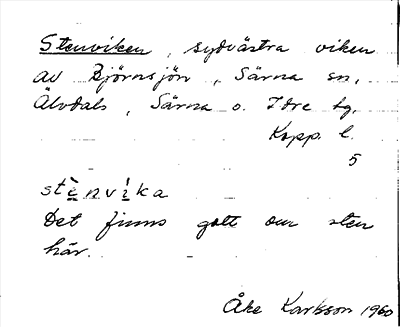 Stenviken, sydvästra viken
av Björnsjön, Särna sn,
Älvdals, Särna o. Idre tg,
Kopp. l.
5
stènvìka
Det finns gott om sten
här.
Åke Karlsson 1960